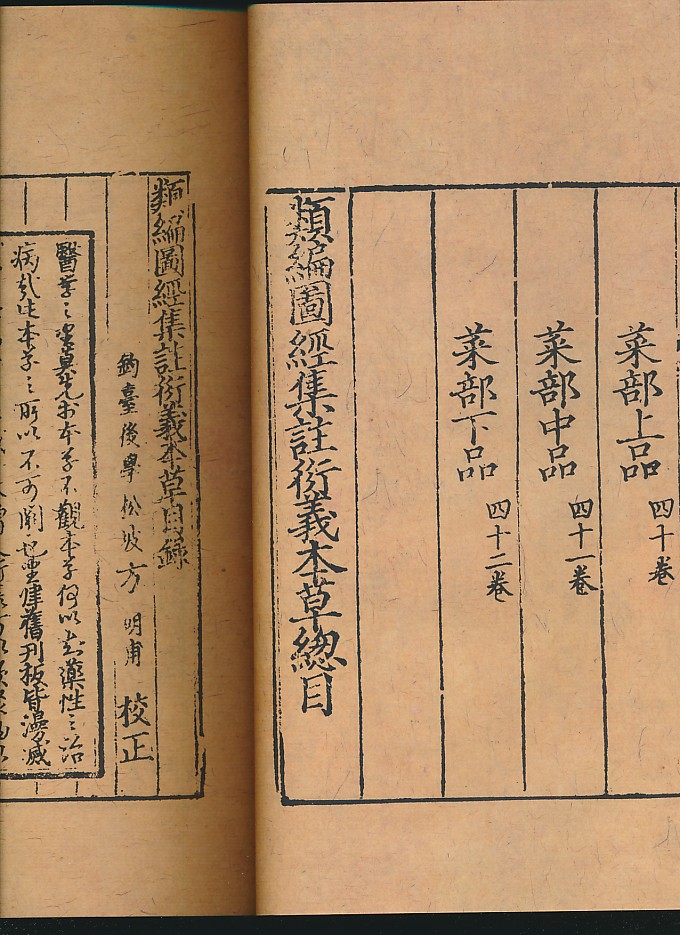 菜部上品 四十卷
菜部中品 四十一卷
菜部下品 四十二卷
類編圖經集註衍義本草總目
類編圖經集註衍義本草目錄
後學松坡方 明甫 校正
醫莫先於本草不觀本草何以知藥性之治
病此本草之所以不可闕也舊刊板皆漫滅